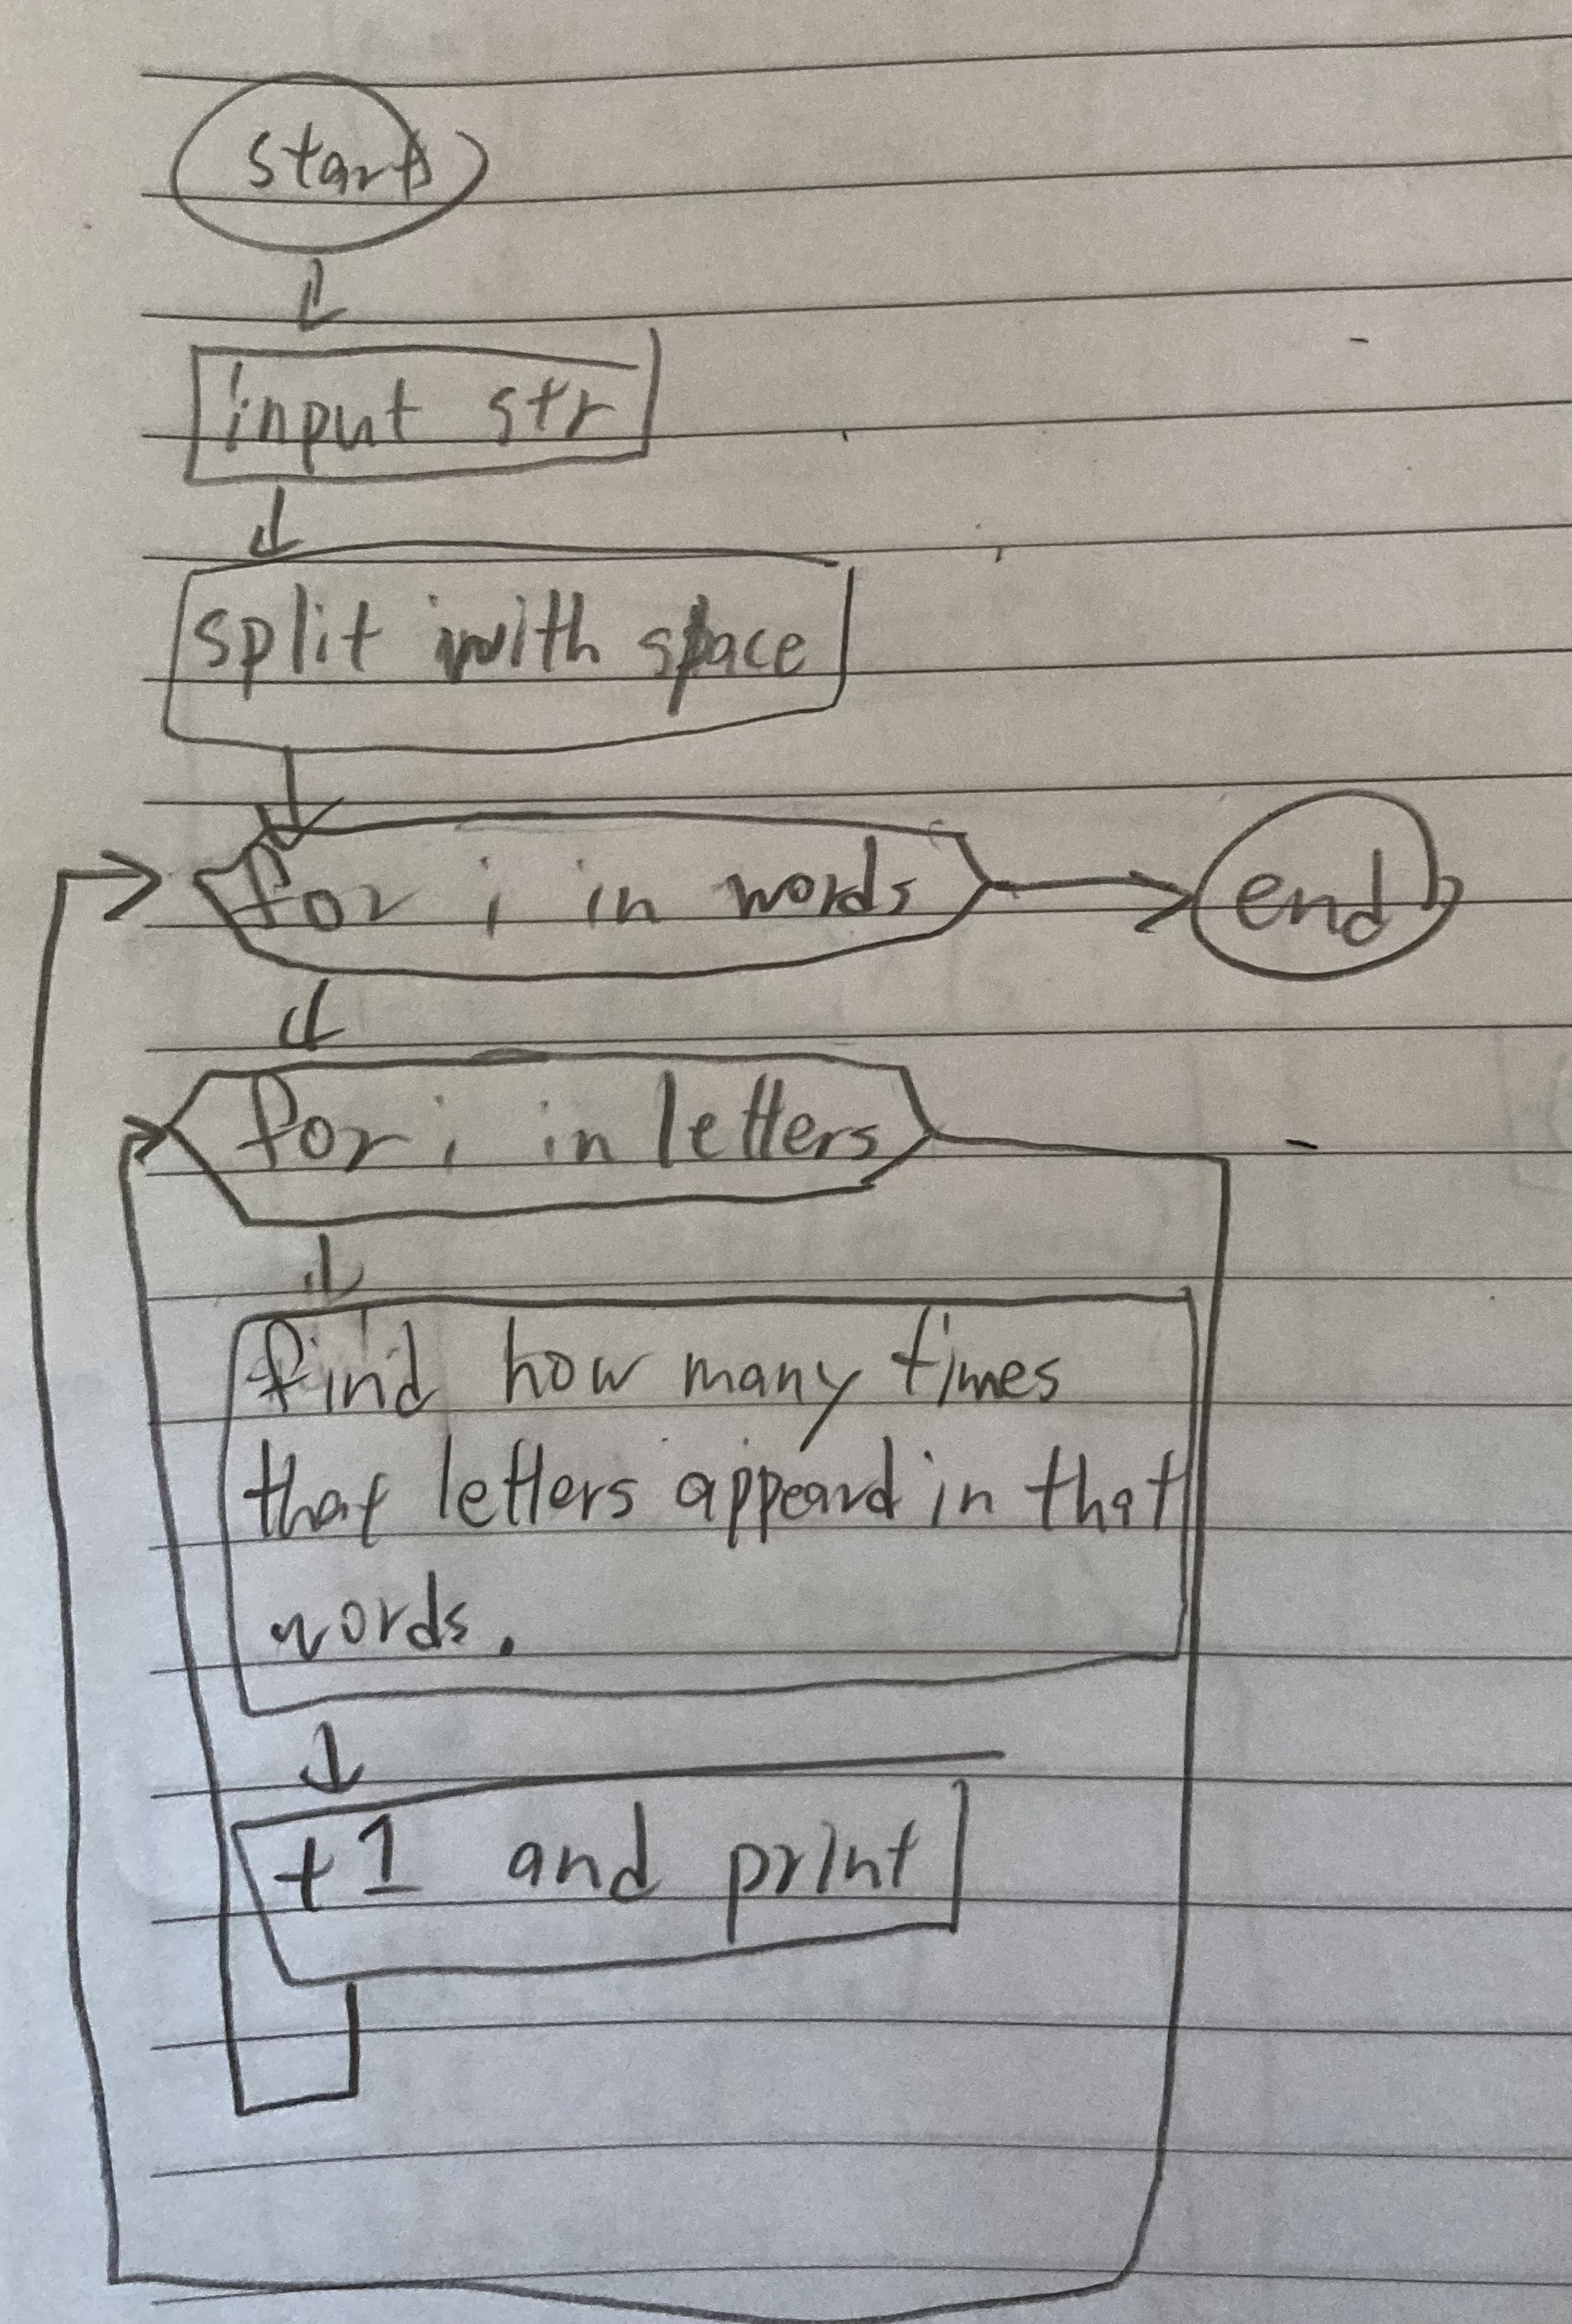 start
input str
split with space
for i in words
end
for i in letters
find how many times
that letters appeard in that
words.
+1 and print